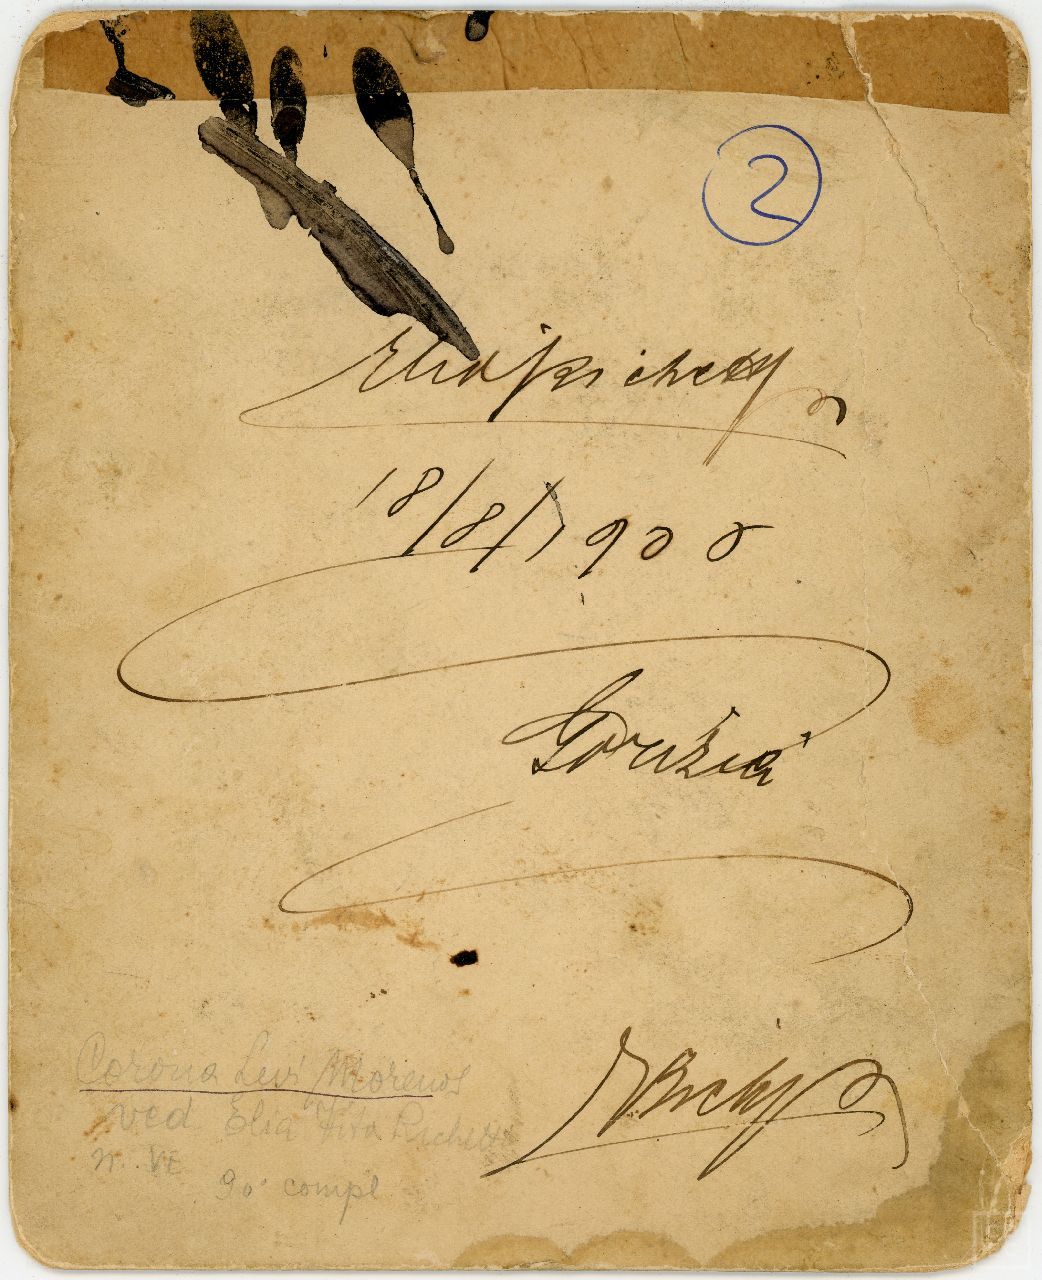 2
Elia Richetti
18/8/1900
Gorizia
Corona Levi Morenos
ved Elia Vita Richetti
n. VE
90° compl